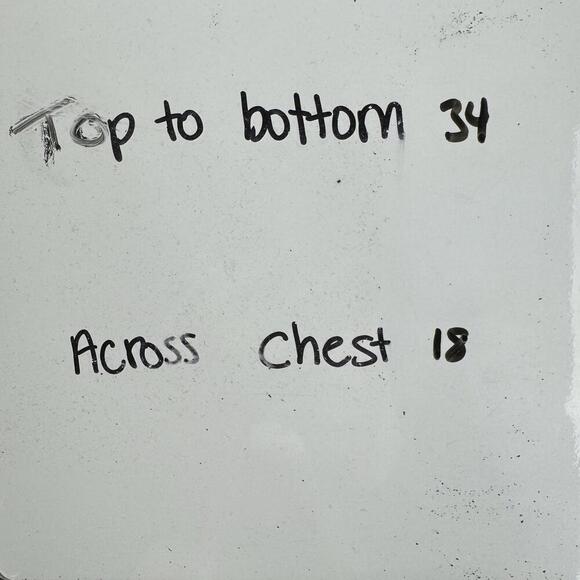 Top to bottom 34
Across Chest 18